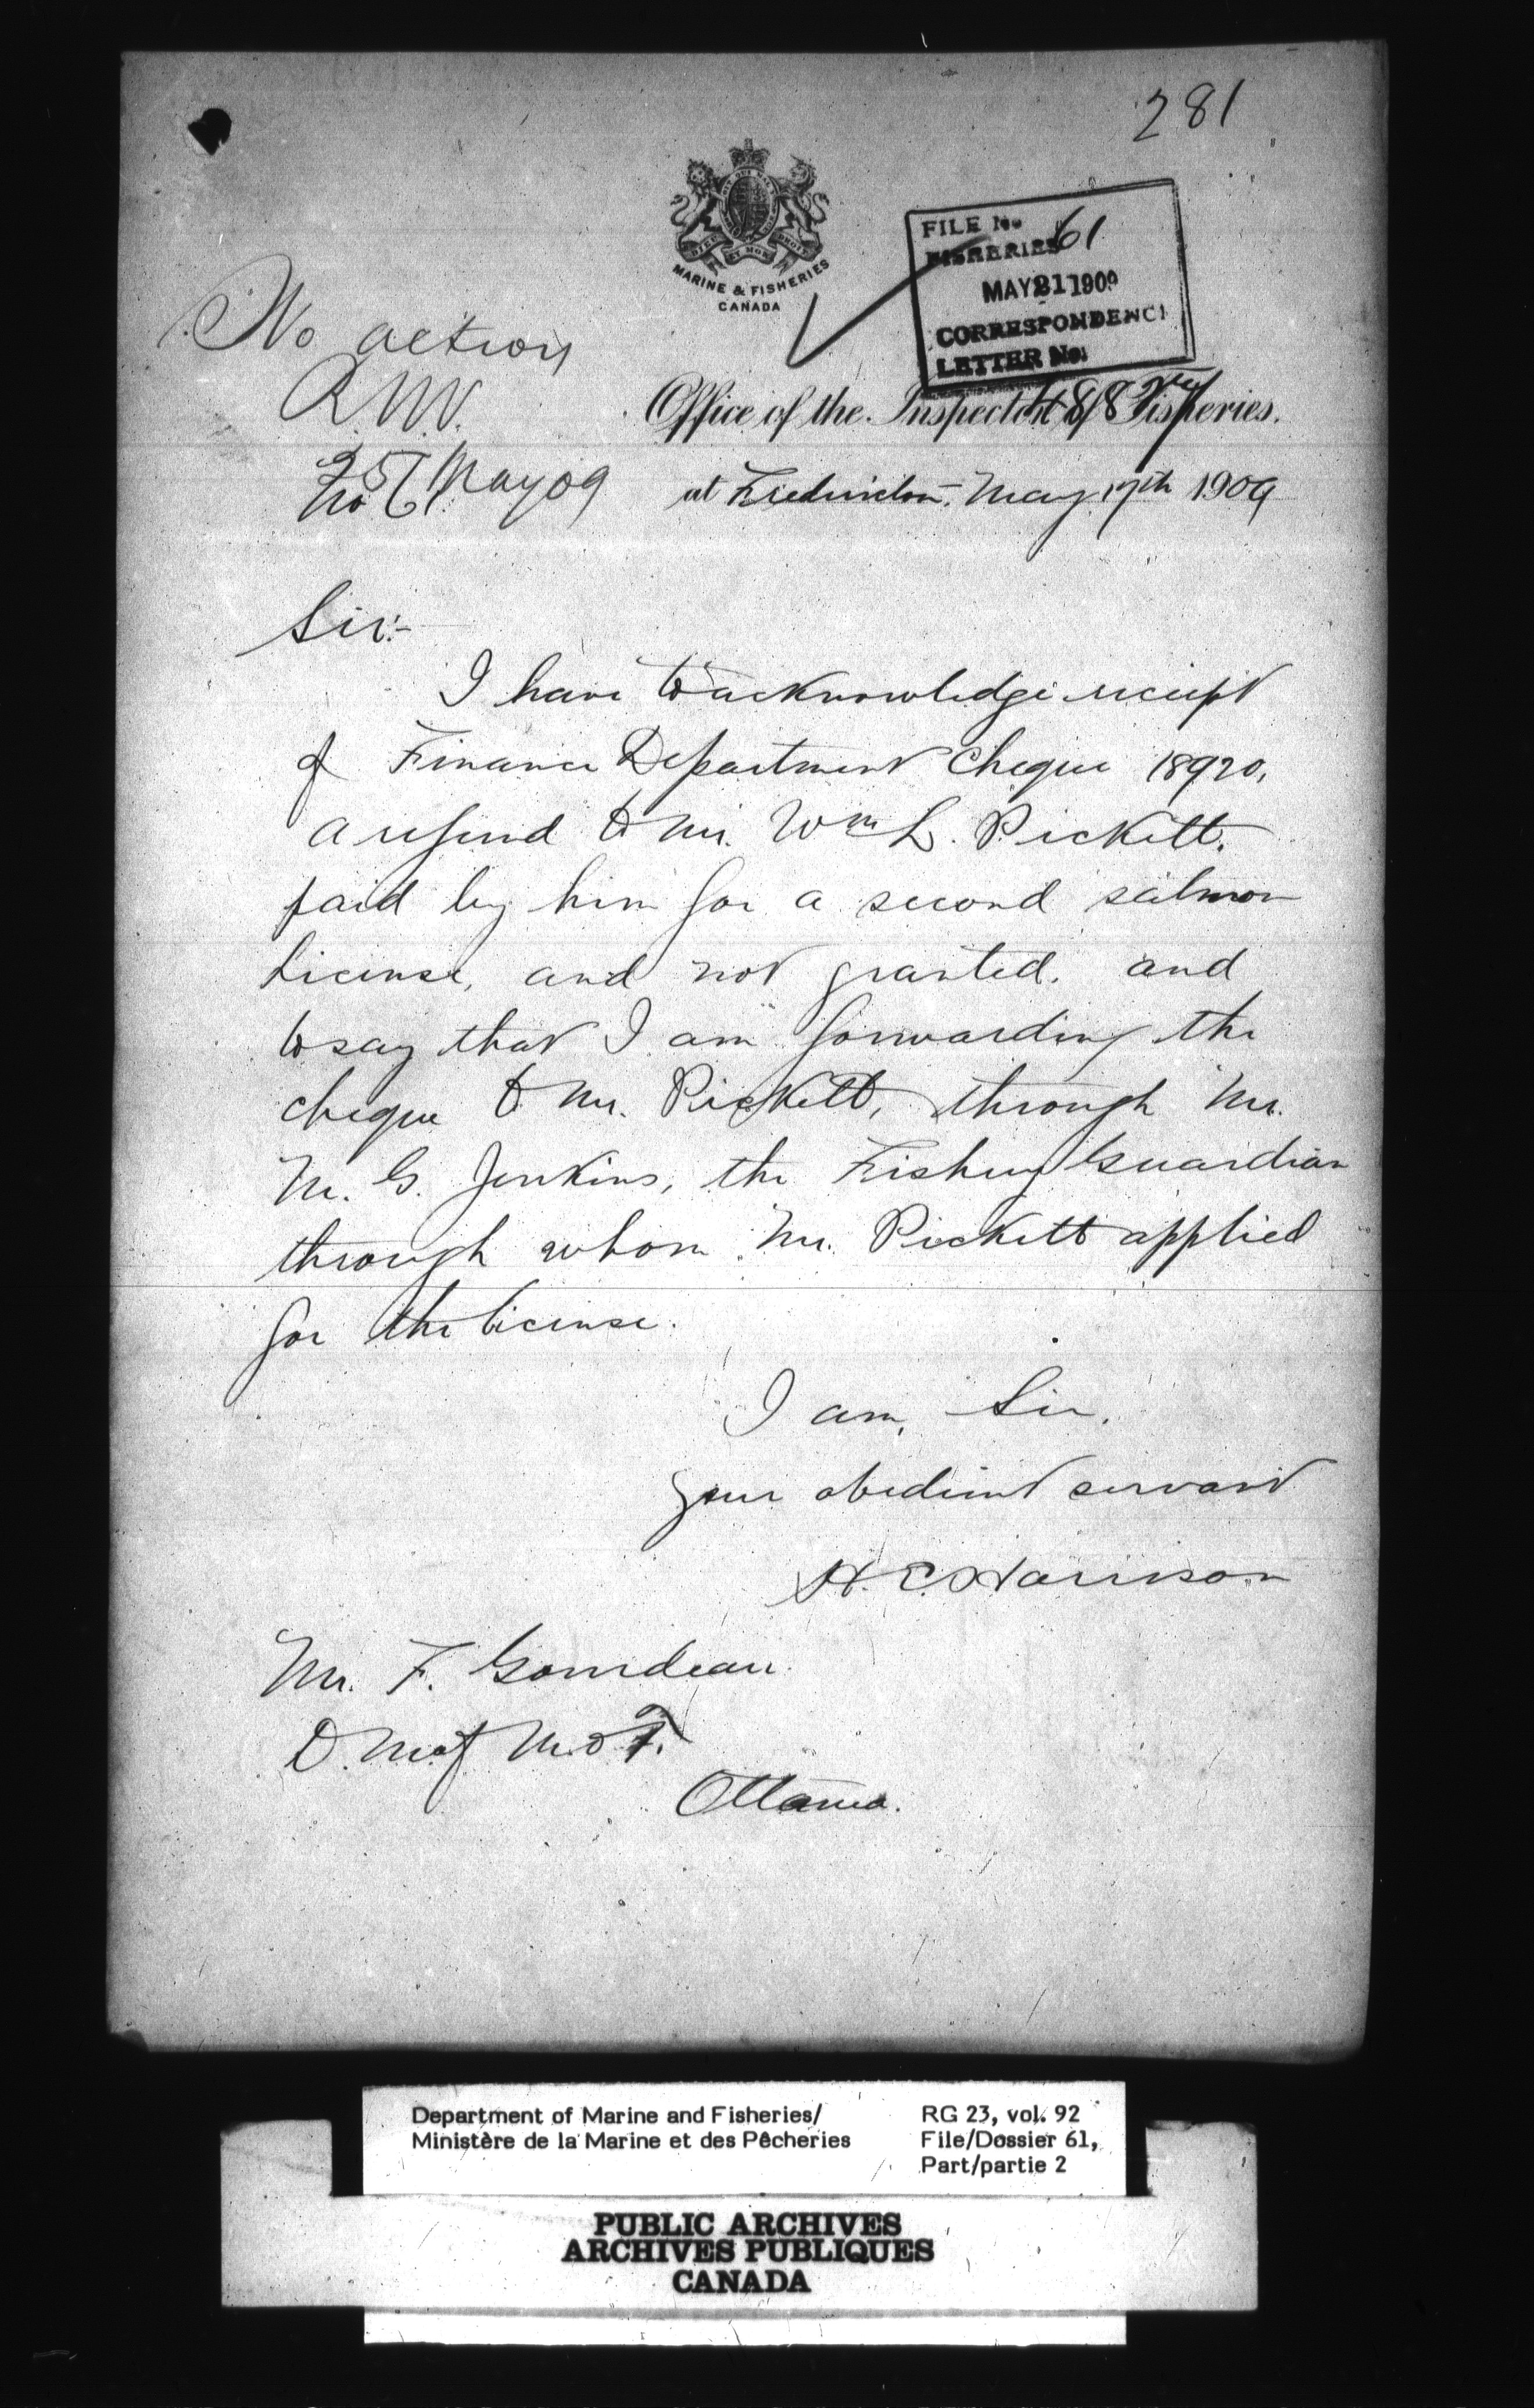 281
MARINE & FISHERIES
CANADA
FILE No 61
FISHERIES
MAY 21 1909
CORRESPONDENCE
LETTER No.
No action
25 May 09
No 61.
Office of the Inspector of Fisheries.
at Fredericton, May 17th 1909
Sir:-
I have to acknowledge receipt
of Finance Department Cheque 18920,
a refund to Mr. Wm L. Pickett,
paid by him for a second salmon
license, and not granted, and
to say that I am forwarding the
cheque to Mr. Pickett, through Mr.
M. G. Jenkins, the Fishery Guardian
through whom Mr. Pickett applied
for the license.
I am, Sir,
your obedient servant
H. E. Harrison
Mr. F. Gourdeau
D. M of M. & F.
Ottawa.
Department of Marine and Fisheries/
Ministère de la Marine et des Pêcheries
RG 23, vol. 92
File/Dossier 61,
Part/partie 2
PUBLIC ARCHIVES
ARCHIVES PUBLIQUES
CANADA